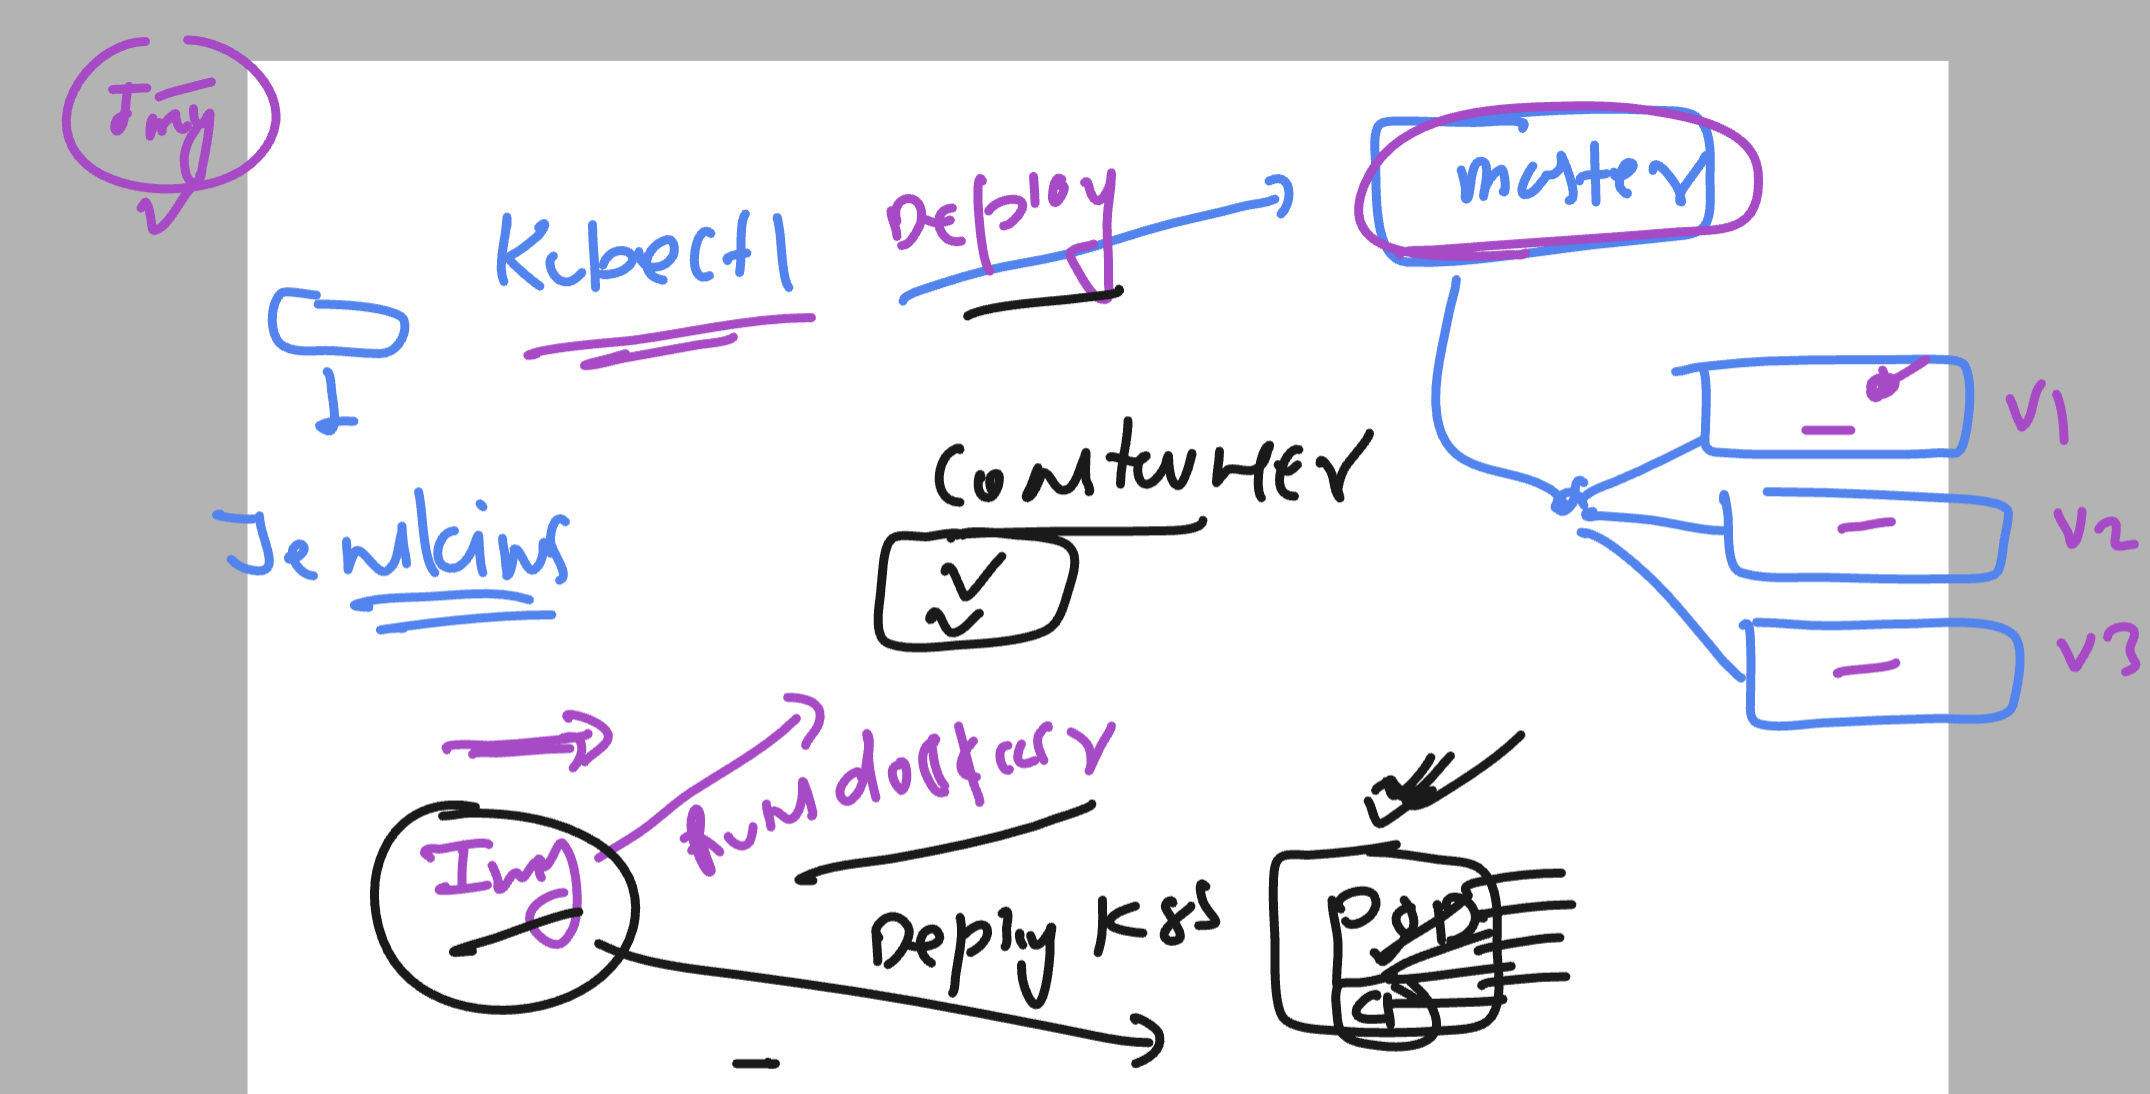 Img
Kubectl
Deploy
master
Jenkins
Container
V1
V2
V3
Img
run docker
Deploy K8S
Pod